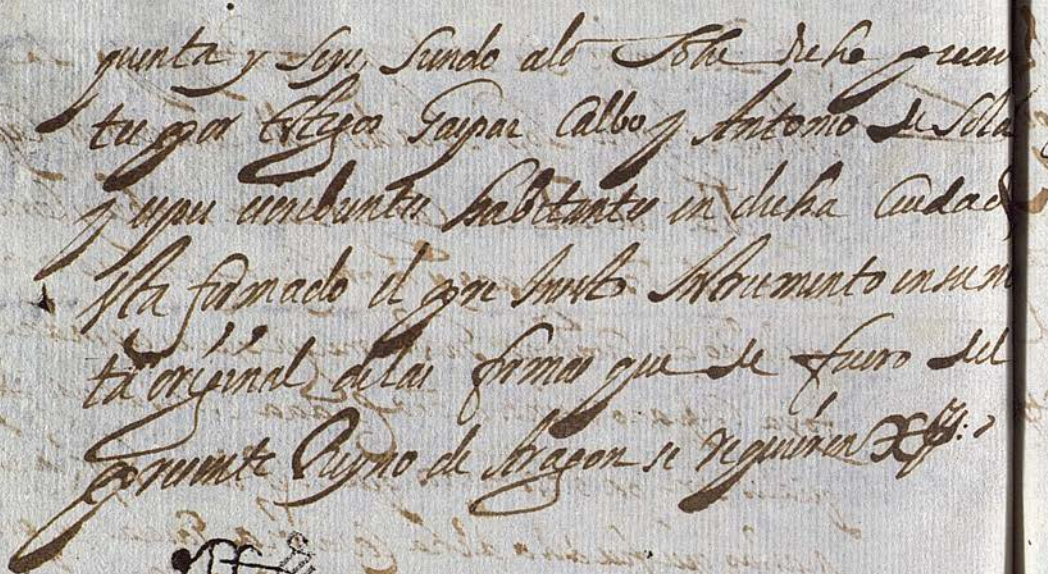 quenta y seys, siendo a lo sobre dicho presen
tes por testigos Gaspar Calbo y Antonio de Sola
y escribientes habitantes en dicha Ciudad
esta firmado el presente Instrumento en su no
ta original de las firmas que de fuero del
presente Reyno de Aragon se requieren